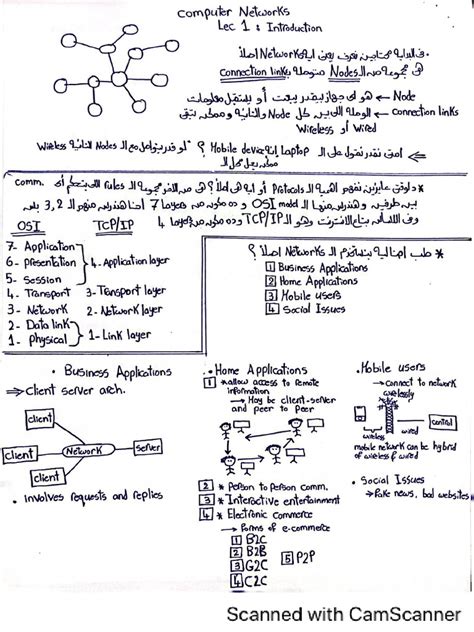 Computer Networks
Lec 1 : Introduction
فى البداية محتاجين نعرف يعنى ايه Networks اصلاً
هى مجموعة من الـ Nodes متوصلة بـ Connection links
Node ← هو اى جهاز بيقدر يبعت أو يستقبل معلومات
Connection links ← الوصلة اللى بين كل Node والتانية وممكن تبقى
Wired أو Wireless
امتى نقدر نقول على الـ Laptop أو Mobile device ايه ؟ لو قدر يتواصل مع الـ Nodes التانية Wireless
* دلوقتى عايزين نفهم اهمية الـ Protocols أو ايه هى اصلاً ؟ هى مجموعة الـ rules اللى بتحكم أى comm.
بين طرفين وهندرس منها الـ OSI model وده مكون من 7 layers احنا هندرس منهم الـ 2,3 بس
وهو الـ TCP/IP وده مكون من 4 layers
OSI TCP/IP
7- Application
6- presentation
5- Session
4- Application layer
4- Transport 3- Transport layer
3- Network 2- Network layer
2- Data link
1- Physical
1- Link layer
* طب احنا ليه بنستخدم الـ Networks اصلاً ؟
1 Business Applications
2 Home Applications
3 Mobile users
4 Social Issues
• Business Applications
⇒ Client server arch.
client
client
client
Network
server
• involves requests and replies
• Home Applications
1 * allow access to remote
information
→ May be client-server
and peer to peer
2 * Person to person comm.
3 * Interactive entertainment
4 * Electronic Commerce
→ forms of e-commerce
1 B2C
2 B2B
3 G2C
4 C2C
5 P2P
• Mobile users
→ connect to network
wirelessly
central
wireless
wired
mobile network can be hybrid
of wireless & wired
• Social Issues
→ fake news, bad websites
Scanned with CamScanner